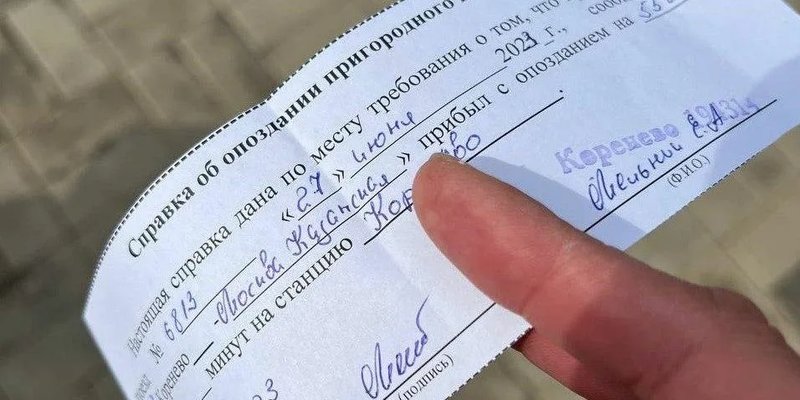 Справка об опоздании пригородного
Настоящая справка дана по месту требования о том, что
№ 6813 « 27 » июня 2023 г.,
Коренево – Москва Казанская » прибыл с опозданием на 53
минут на станцию
Коренево
Мельник Е.А.
(подпись) (ФИО)
23